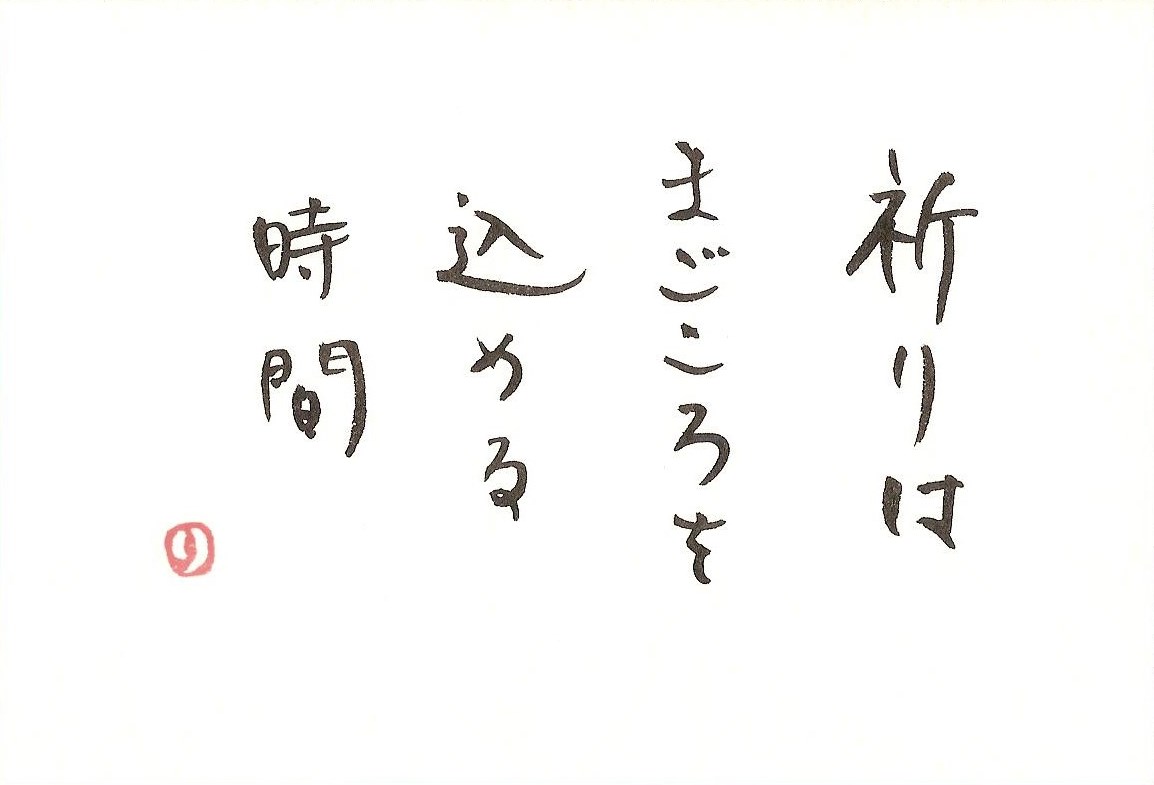 祈りは
まごころを
込める
時間